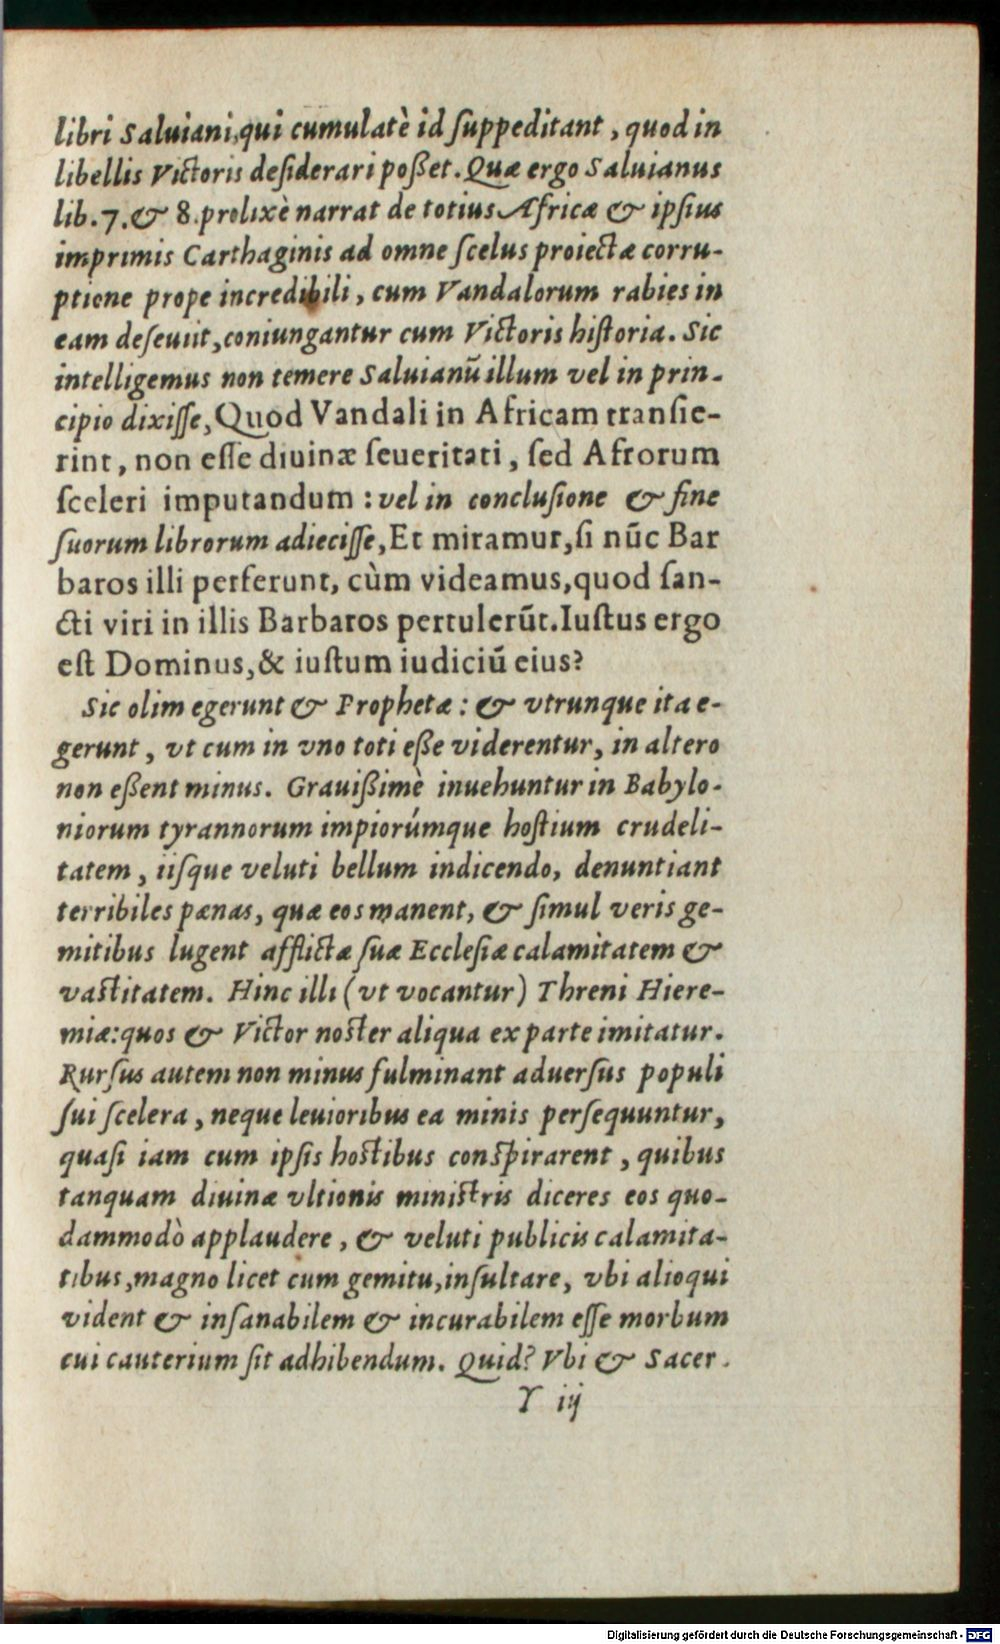 libri Saluiani, qui cumulatè id ſuppeditant, quod in
libellis Victoris deſiderari poßet. Quæ ergo Saluianus
lib. 7. & 8. prolixè narrat de totius Africæ & ipſius
imprimis Carthaginis ad omne ſcelus proiectæ corru-
ptione prope incredibili, cum Vandalorum rabies in
eam deſeuiit, coniungantur cum Victoris hiſtoria. Sic
intelligemus non temere Saluianũ illum vel in prin-
cipio dixiſſe, Quod Vandali in Africam tranſie-
rint, non eſſe diuinæ ſeueritati, ſed Afrorum
ſceleri imputandum: vel in concluſione & fine
ſuorum librorum adieciſſe, Et miramur, ſi nũc Bar
baros illi perferunt, cùm videamus, quod ſan-
cti viri in illis Barbaros pertulerũt. Iuſtus ergo
eſt Dominus, & iuſtum iudiciũ eius?
Sic olim egerunt & Prophetæ: & vtrunque ita e-
gerunt, vt cum in vno toti eße viderentur, in altero
non eßent minus. Grauißimè inuehuntur in Babylo-
niorum tyrannorum impiorúmque hoſtium crudeli-
tatem, iiſque veluti bellum indicendo, denuntiant
terribiles pænas, quæ eos manent, & ſimul veris ge-
mitibus lugent afflictæ ſuæ Eccleſiæ calamitatem &
vaſtitatem. Hinc illi (vt vocantur) Threni Hiere-
miæ: quos & Victor noſter aliqua ex parte imitatur.
Rurſus autem non minus fulminant aduerſus populi
ſui ſcelera, neque leuioribus ea minis perſequuntur,
quaſi iam cum ipſis hoſtibus conſpirarent, quibus
tanquam diuinæ vltionis miniſtris diceres eos quo-
dammodò applaudere, & veluti publicis calamita-
tibus, magno licet cum gemitu, inſultare, vbi alioqui
vident & inſanabilem & incurabilem eſſe morbum
cui cauterium ſit adhibendum. Quid? Vbi & Sacer-
Y iij
Digitalisierung gefördert durch die Deutsche Forschungsgemeinschaft - DFG